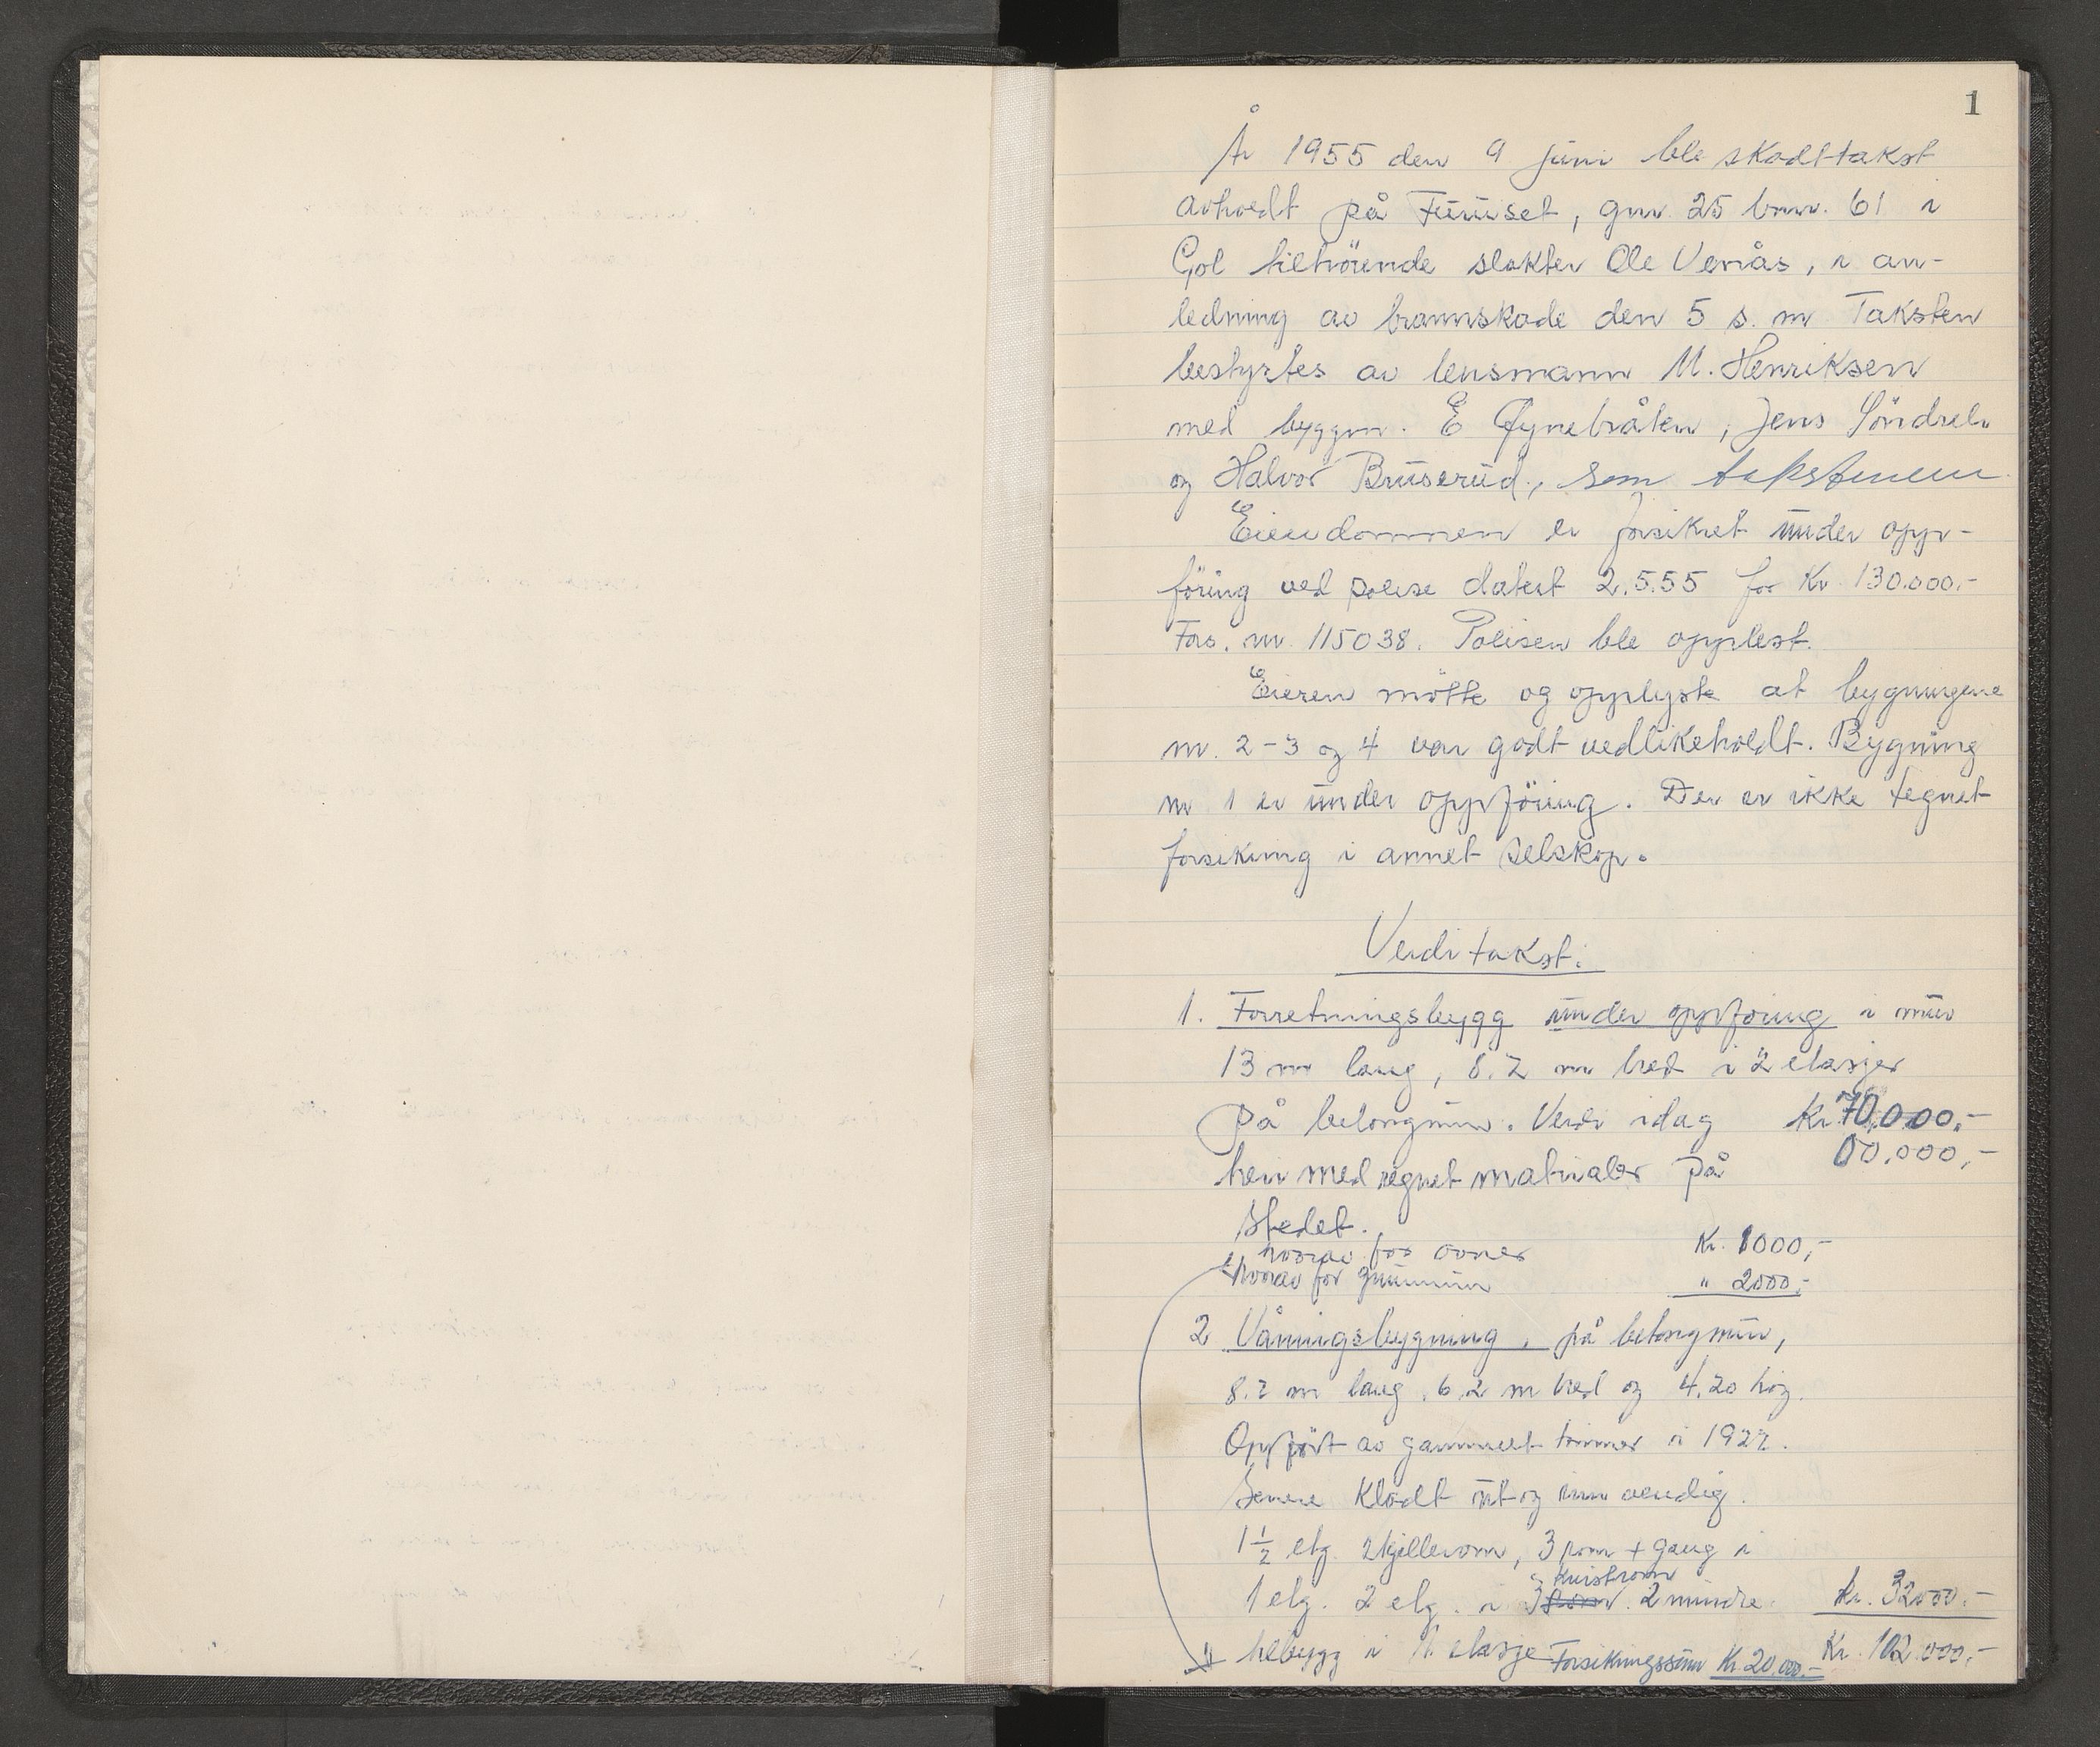 1
År 1955 den 9 juni ble skadetakst
avholdt på Furuset, gnr. 25 bnr. 61 i
Gol tilhörende slakter Ole Venås, i an-
ledning av brannskade den 5 s. m Taksten
bestyrtes av lensmann M. Henriksen
med byggm. E Øynebråten, Jens Söndrel
og Halvor Bruserud, som takstmenn.
Eiendommen er forsikret under opp-
föring ved polise datert 2.5.55 for Kr 130.000.-
Fors. nr. 115038. Polisen ble opplest.
Eieren mötte og opplyste at bygningene
nr. 2-3 og 4 var godt vedlikeholdt. Bygning
nr 1 er under oppföring. Der er ikke tegnet
forsikring i annet selskap.
Verditakst:
1. Forretningsbygg under oppföring i mur
13 m lang, 8.2 m bred i 2 etasjer
på betongmur. Verdi idag Kr. 70.000,-
00.000,-
heri medregnet materialer på
stedet.
hvorav for ovner Kr. 1000,-
hvorav for grunnmur " 2000,-
2 Våningsbygning, på betongmur,
8.2 m lang, 6.2 m bred og 4,20 høg.
Oppfört av gammelt tömmer i 1927.
Senere Kledt ut og innvendig.
1½ etg. 2 kjellerrom, 3 rom + gang i
Kvistrom
1 etg. 2 etg. i 3 rom. 2 mindre. Kr. 32000.-
tilbygg i 1. etasje Forsikringssum Kr. 20.000.- Kr. 102.000,-